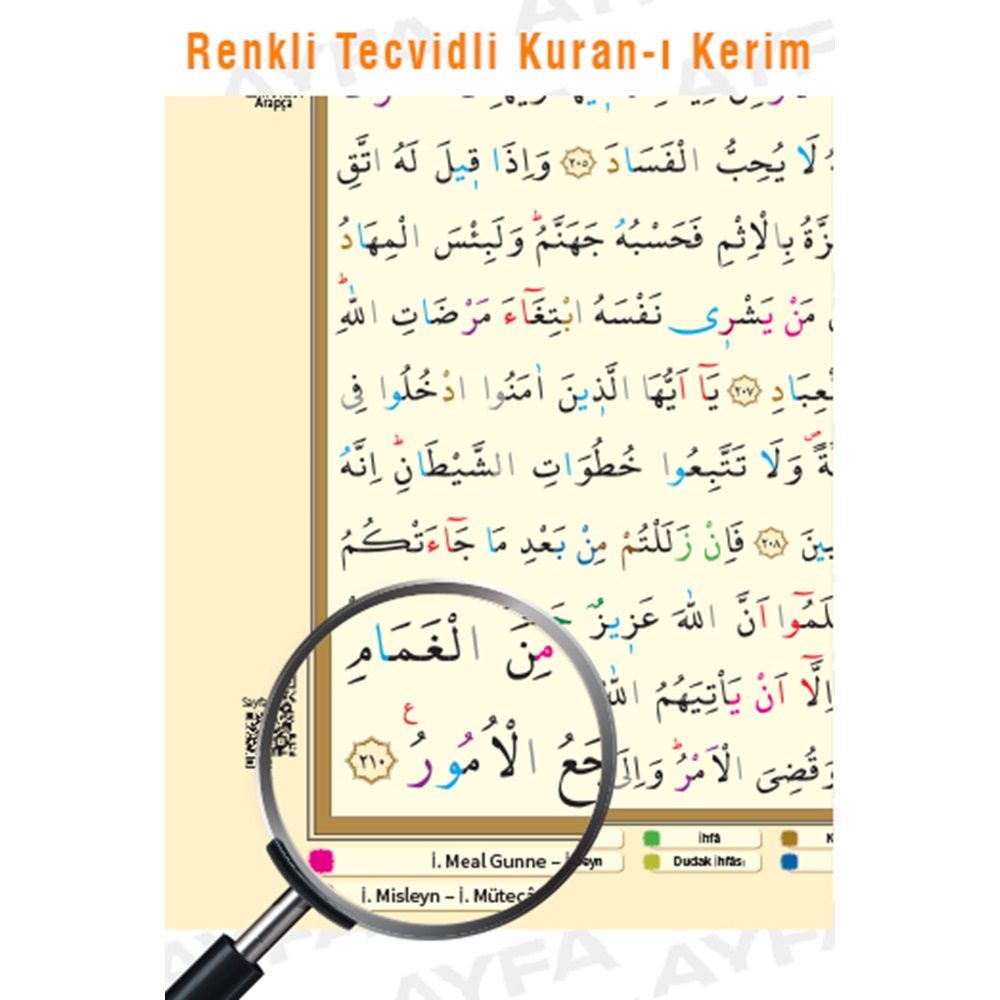 Renkli Tecvidli Kuran-ı Kerim
Arapça
لَا يُحِبُّ الْفَسَادَ ﴿٢٠٥﴾ وَاِذَا قٖيلَ لَهُ اتَّقِ
بِالْاِثْمِ فَحَسْبُهُ جَهَنَّمُۜ وَلَبِئْسَ الْمِهَادُ
مَنْ يَشْرٖي نَفْسَهُ ابْتِغَٓاءَ مَرْضَاتِ اللّٰهِۜ
﴿٢٠٧﴾ يَٓا اَيُّهَا الَّذٖينَ اٰمَنُوا ادْخُلُوا فِي
وَلَا تَتَّبِعُوا خُطُوَاتِ الشَّيْطَانِۜ اِنَّهُ
﴿٢٠٨﴾ فَاِنْ زَلَلْتُمْ مِنْ بَعْدِ مَا جَٓاءَتْكُمُ
اَنَّ اللّٰهَ عَزٖيزٌ
مِنَ الْغَمَامِ
اِلَّٓا اَنْ يَأْتِيَهُمُ اللّٰهُ
وَقُضِيَ الْاَمْرُۜ وَاِلَى
الْاُمُورُ ﴿٢١٠﴾
ع
İhfâ
İ. Meal Gunne –
Dudak İhfâsı
İ. Misleyn – İ.
AYFA
AYFA
AYFA